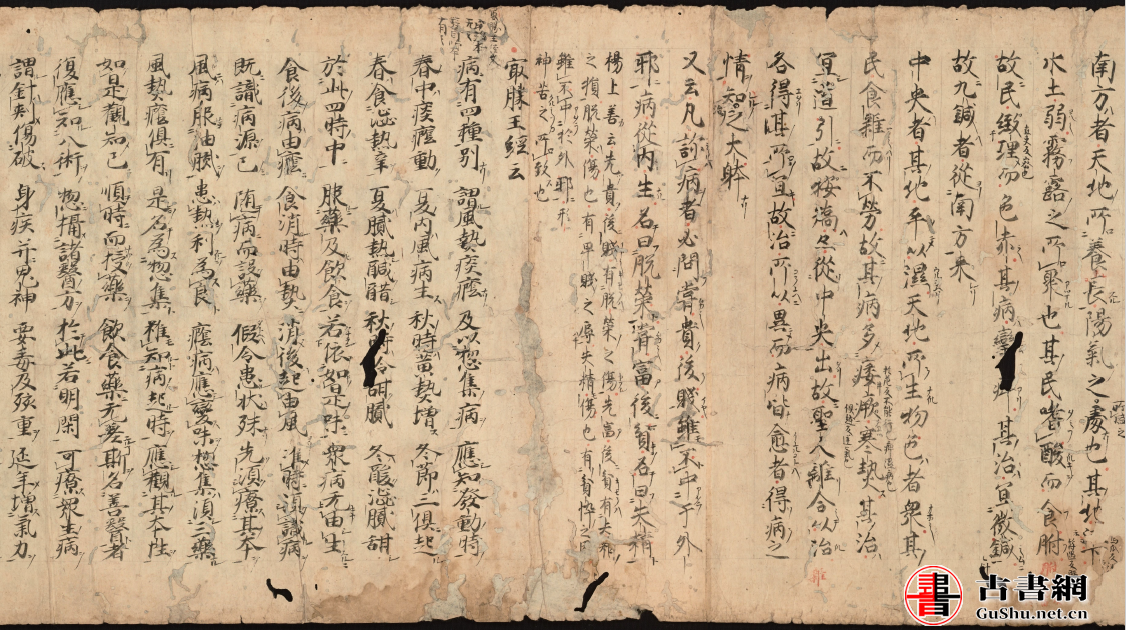 南方者天地所養長陽氣之處也其地下
水土弱霧露之所聚也其民嗜酸而食胕
故民緻理而色赤其病攣 其治宜微鍼
故九鍼者從南方来
中央者其地平以濕天地所生物色者衆其
民食雜而不勞故其病多痿厥寒热其治
宜導引故按蹻亦從中央出故聖人雜合以治
各得其所宜故治所以異而病皆愈者得病之
情知治之大躰
又云凡診病者必問甞貴後賤雖不中于外
耶病從内生名曰脱榮甞富後貧名曰失精
楊上善云先貴後賤有脱榮之傷先富後貧有失精
之損脱榮傷也有卑賤之辱失精傷也有貧悴之
雖不中於外耶形
神苦之所致也
寂勝王経云
病有四種別 謂風熱痰癊 及以惣集病 應知發動時
春中痰癊動 夏内風病生 秋時黄熱增 冬節三俱起
春食澁熱辛 夏膩熱鹹醋 秋時冷甜膩 冬酸澁膩甜
於此四時中 服藥及飲食 若依如是味 衆病无由生
食後病由癊 食消時由熱 消後起由風 准時須識病
既識病源已 随病而設藥 假令患狀殊 先須療其本
風病服油膩 患熱利為良 癊病應變吐 惣集須三藥
風熱癊俱有 是名為惣集 雖知病起時 應觀其本性
如是觀知已 順時而授藥 飲食藥无差 斯名善醫者
復應知八術 惣攝諸醫方 於此若明閑 可療衆生病
謂針刺傷破 身疾并鬼神 悪毒及孩童 延年增氣力
古書網
GuShu.net.cn